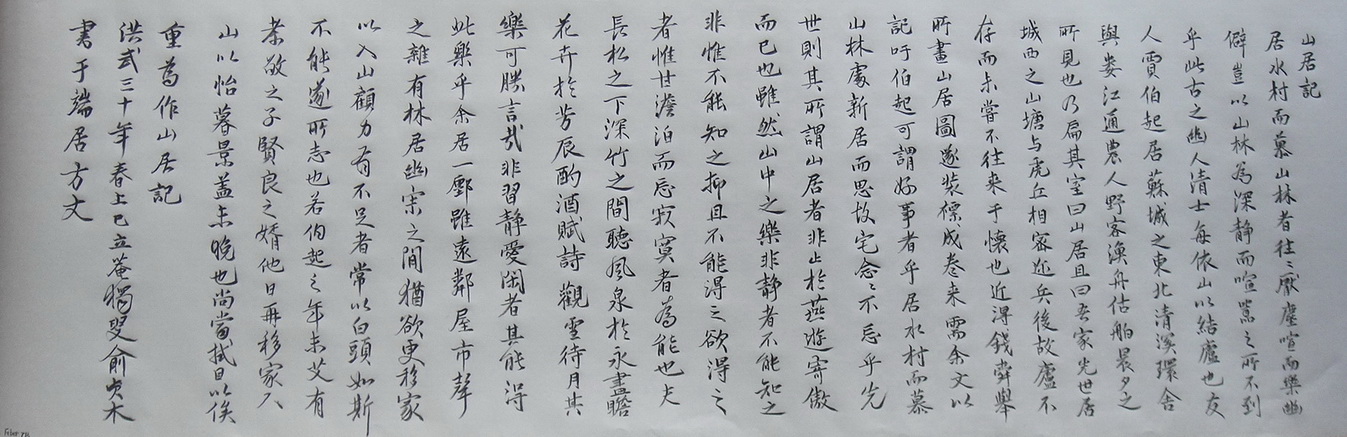 山居記
居水村而慕山林者往〻厭塵喧而樂幽
僻豈以山林為深静而喧囂之所不到
乎此古之幽人清士每依山以結廬也友
人賈伯起居蘇城之東北清溪環舍
與婁江通農人野客漁舟估舶晨夕之
所見也乃扁其室曰山居且曰吾家先世居
城西之山塘与虎丘相密迩兵後故廬不
存而未嘗不往来于懷也近得錢舜舉
所畫山居圖遂装褾成卷来需余文以
記吁伯起可謂好事者乎居水村而慕
山林處新居而思故宅念〻不忘乎先
世則其所謂山居者非止於燕遊寄傲
而已也雖然山中之樂非静者不能知之
非惟不能知之抑且不能得之欲得之
者惟甘澹泊而忘寂寞者為能也夫
長松之下深竹之間聽風泉於永晝瞻
花卉於芳辰酌酒賦詩觀雲待月其
樂可勝言哉非習静愛閑者其能得
此樂乎余居一鄽雖遠鄰屋市聲
之雜有林居幽寂之閒猶欲更移家
以入山顧力有不足者常以白頭如斯
不能遂所志也若伯起之年未艾有
孝敬之子賢良之婿他日再移家入
山以怡暮景蓋未晚也尚當拭目以俟
重為作山居記
洪武三十年春上巳立菴獨叟俞貞木
書于端居方丈